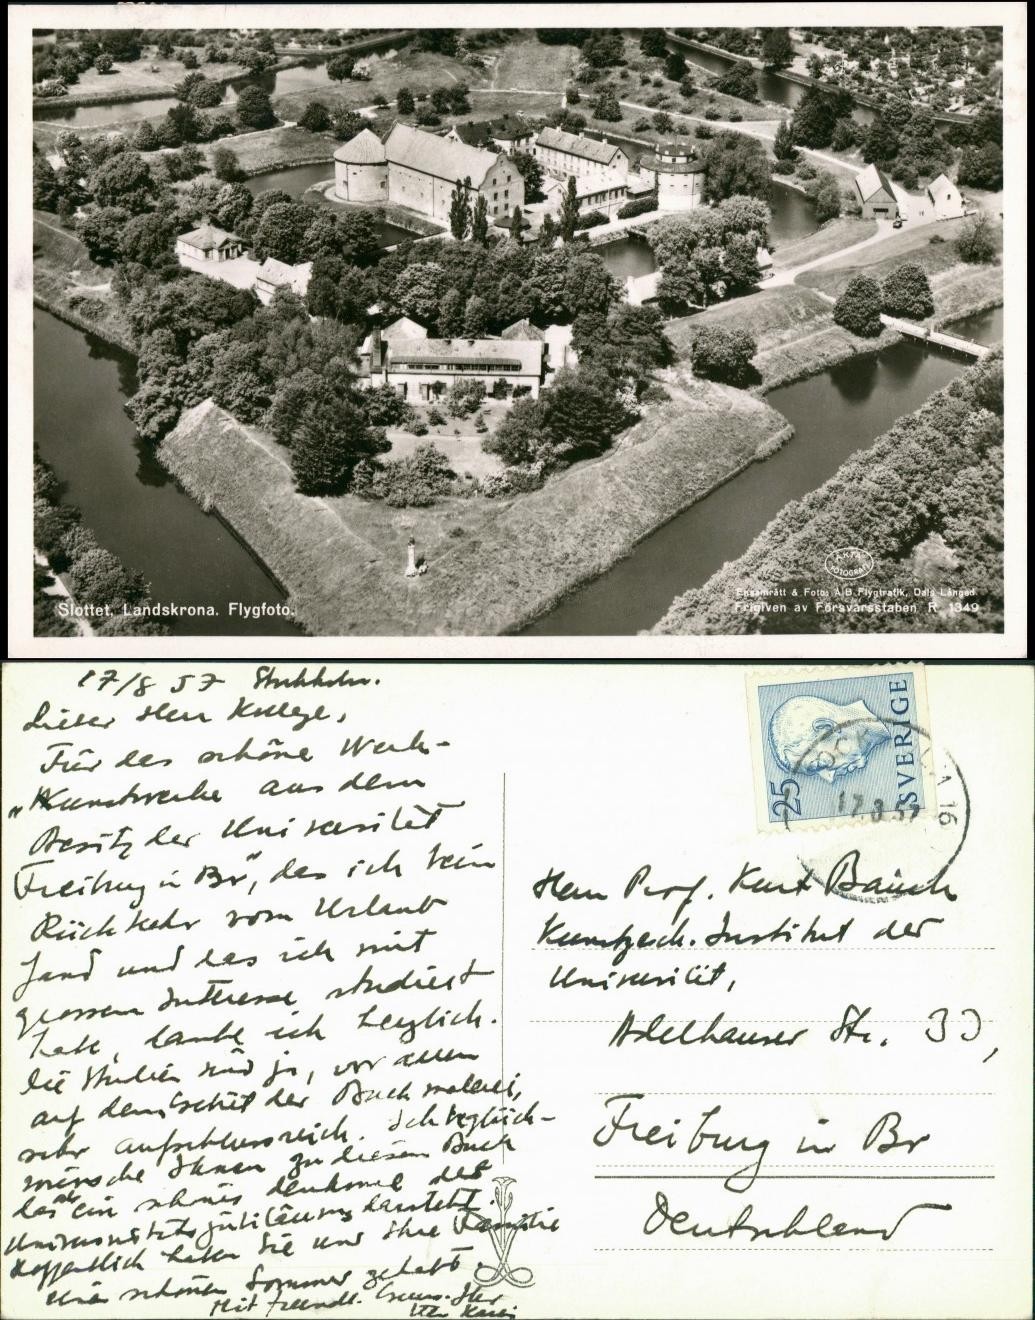 AKTA
FOTOGRAFI
Ensamrätt & Foto: A/B Flygtrafik, Dals Långed
Slottet, Landskrona. Flygfoto.
Frigiven av Försvarsstaben R. 1349
17/8 57 Stockholm.
Lieber Herr Kollege,
Für das schöne Werk -
„Kunstwerke aus dem
Besitz der Universität
Freiburg in Br", das ich bein
Rückkehr vom Urlaub
fand und das ich mit
grossem Interesse studiert
habe, danke ich herzlich.
Die Studien sind ja, vor allem
auf dem Gebiet der Buchmalerei,
sehr aufschlussreich. Ich beglück-
wünsche Ihnen zu diesem Buch
das ein schönes Denkmal des
Universitätsjubiläums darstellt.
Hoffentlich haben Sie und Ihre Familie
einen schönen Sommer gehabt.
Mit freundl. Gruss. Ihr
25
SVERIGE
STOCKHOLM 16
17.8.57
Herrn Prof. Kurt Bauch
Kunstgesch. Institut der
Universität,
Adelhauser Str. 33,
Freiburg in Br
Deutschland